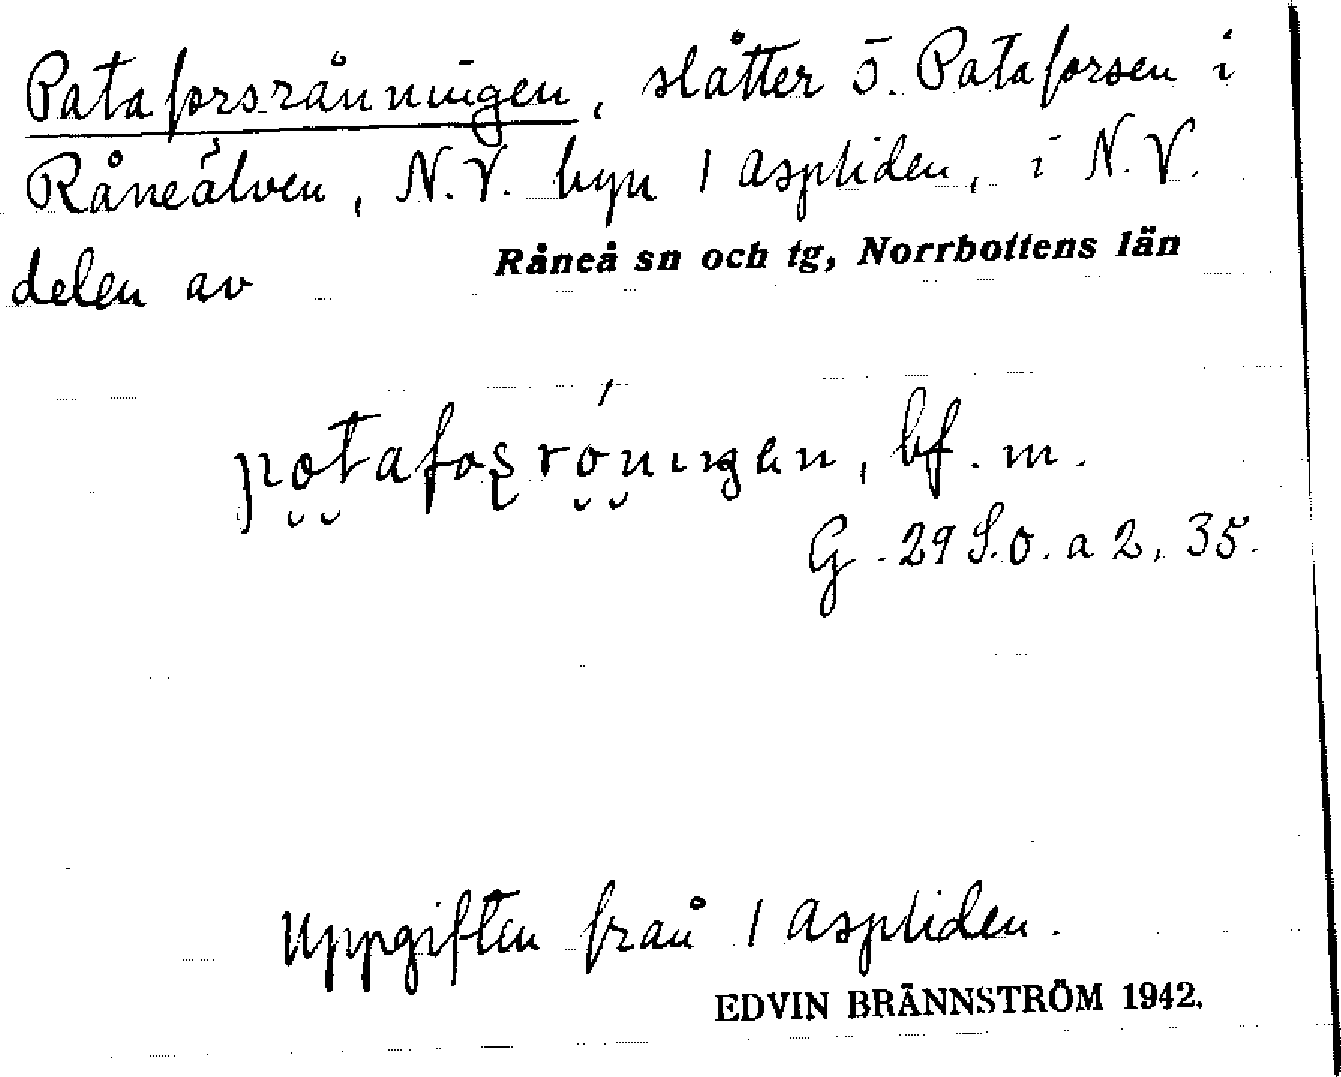 Pataforsrånningen, slåtter ö. Pataforsen i
Råneälven, N.V. byn 1 Aspliden, i N.V.
delen av Råneå sn och tg, Norrbottens län
bf. m.
G. 29 S.O. a 2, 35.
Uppgiften från 1 Aspliden.
EDVIN BRÄNNSTRÖM 1942.